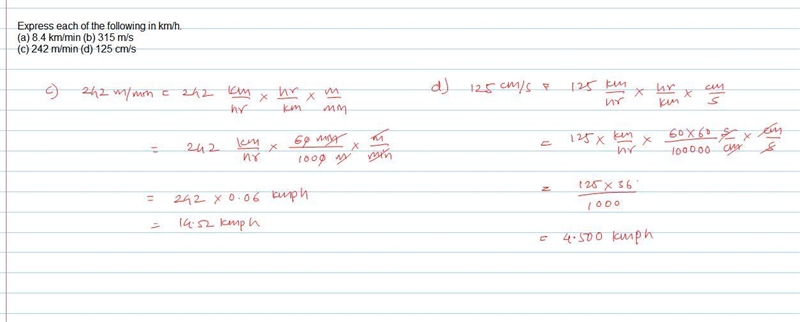 Express each of the following in km/h.
(a) 8.4 km/min (b) 315 m/s
(c) 242 m/min (d) 125 cm/s
c) 242 m/min = 242 km/hr × hr/km × m/min
= 242 km/hr × 60 min/1000 m × m/min
= 242 × 0.06 kmph
= 14.52 kmph
d) 125 cm/s = 125 km/hr × hr/km × cm/s
= 125 × km/hr × 60×60 s/100000 cm × cm/s
= 125 × 36/1000
= 4.500 kmph